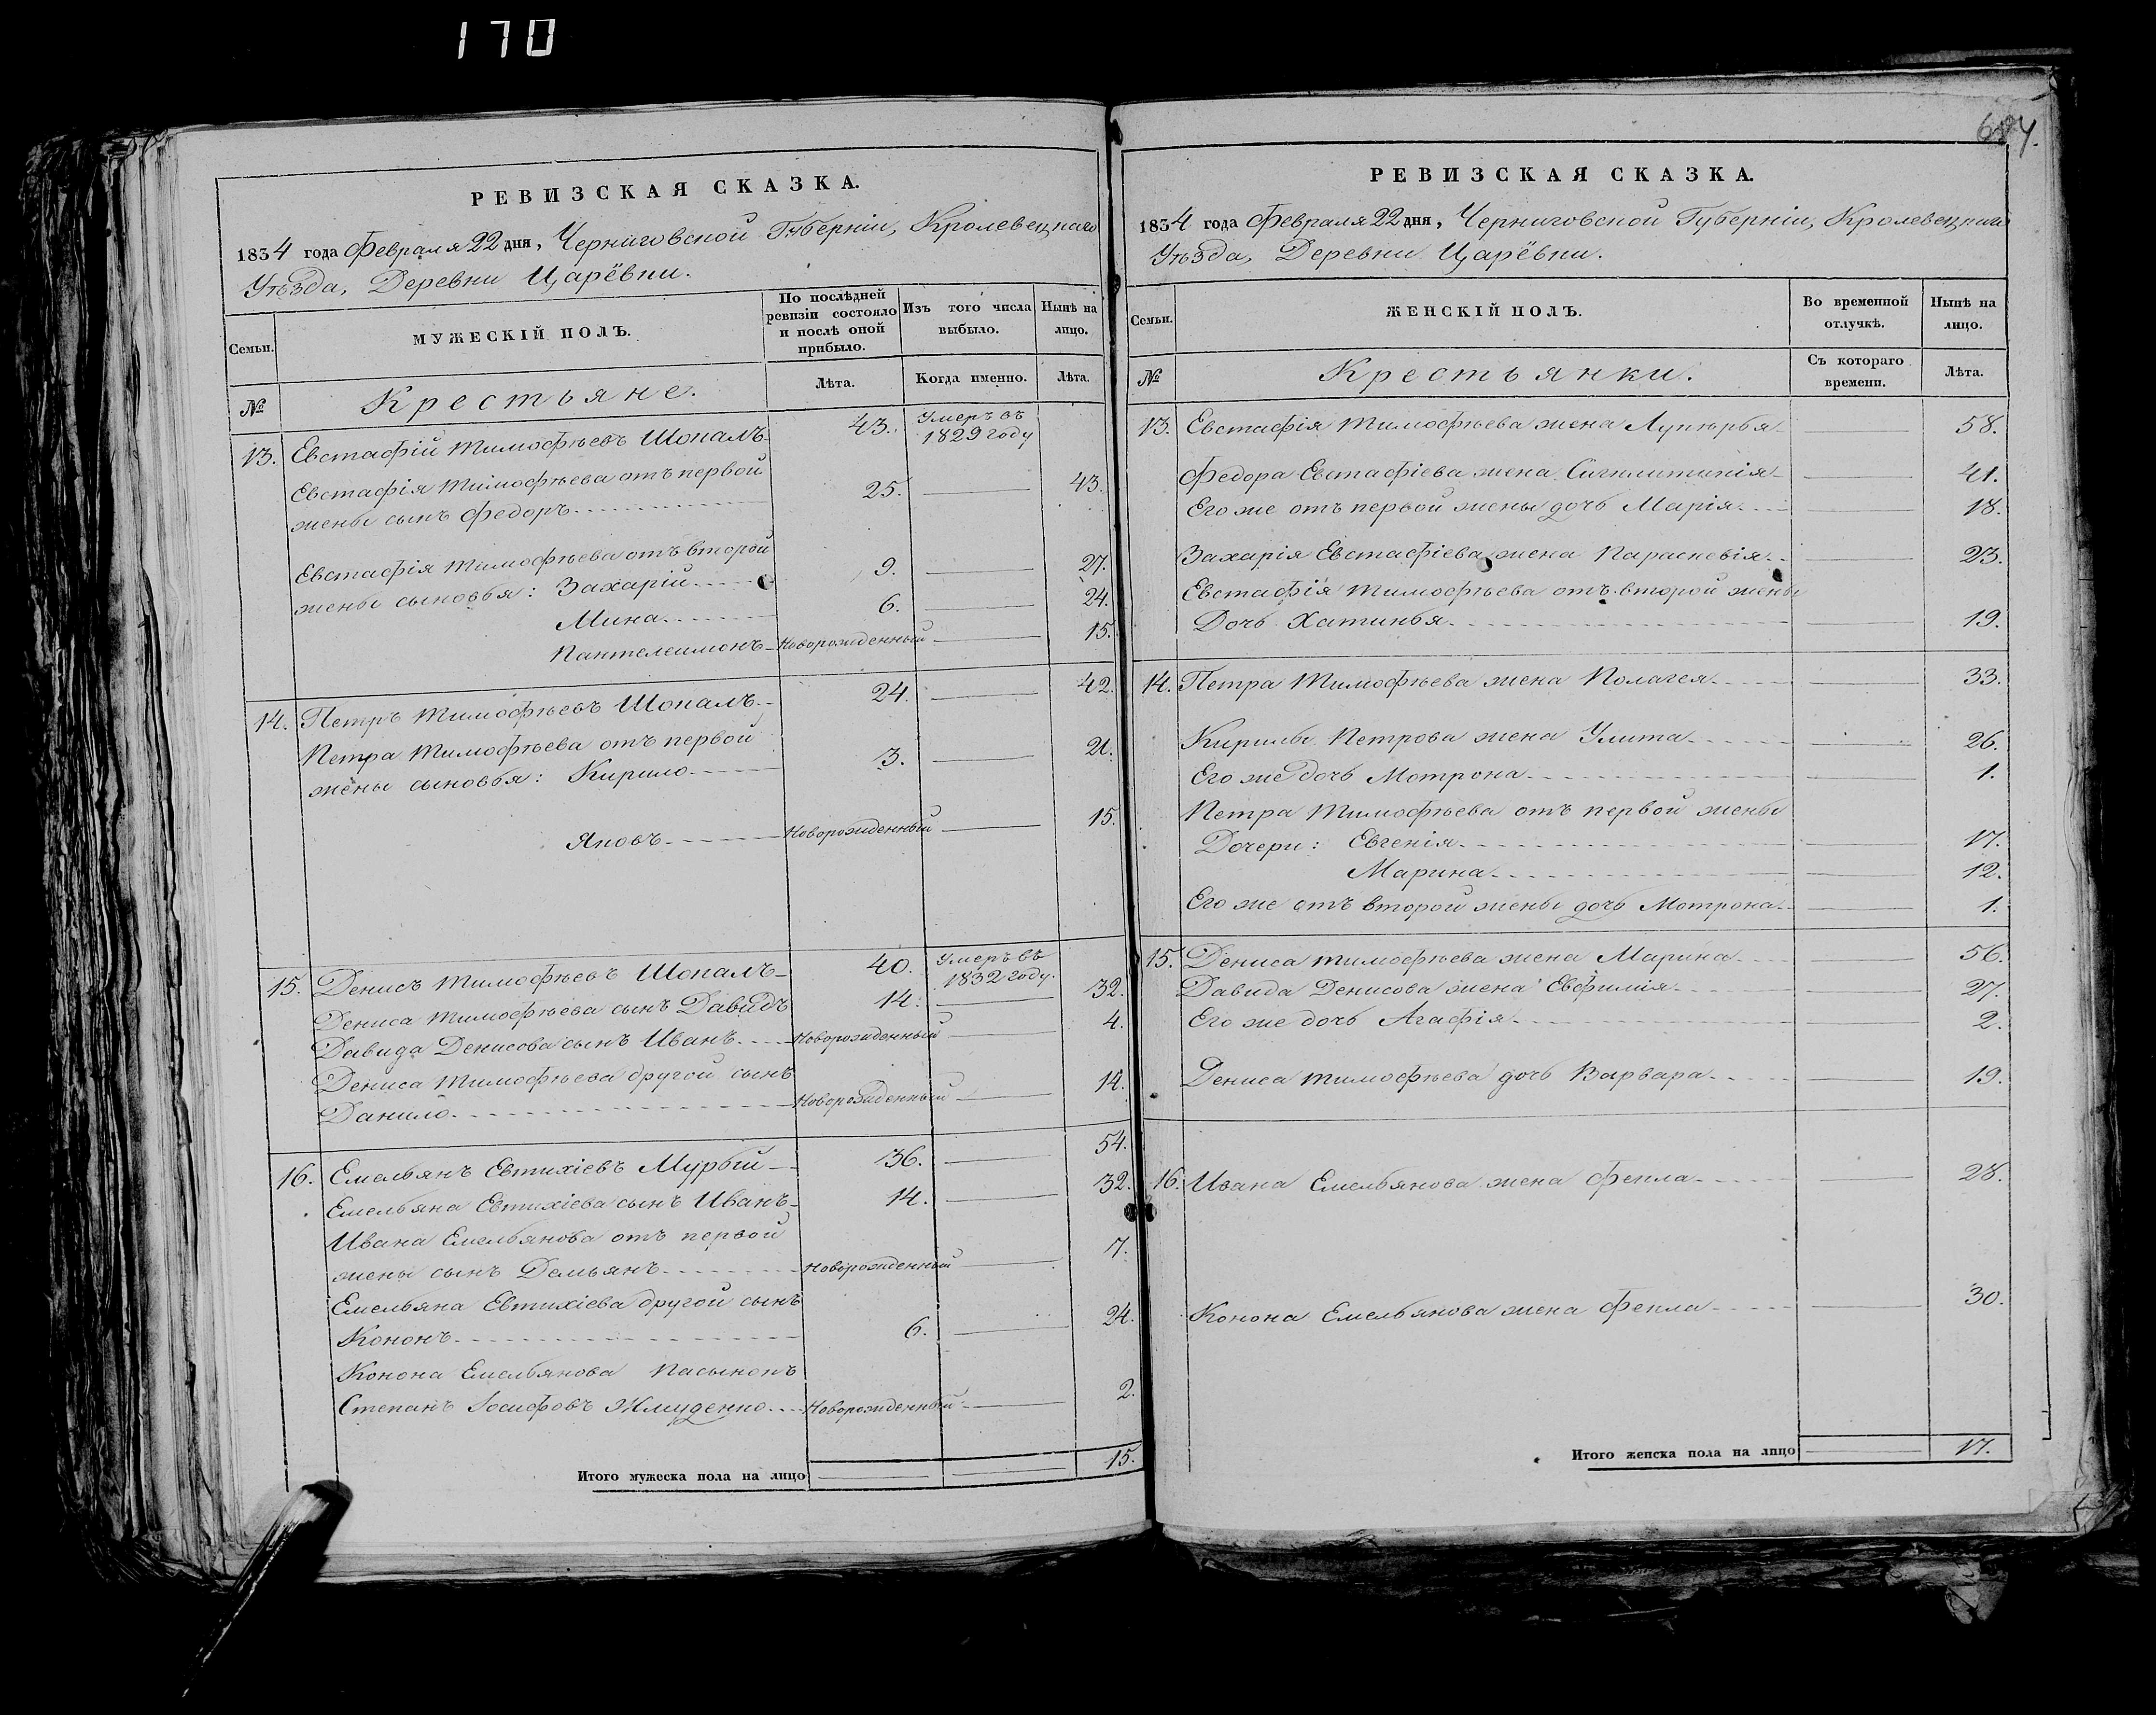 170
684.
РЕВИЗСКАЯ СКАЗКА.
1834 года Февраля 22 дня, Черниговской Губерніи, Кролевецкаго
Уѣзда, Деревни Царёвки.
Семьи.
МУЖЕСКІЙ ПОЛЪ.
По послѣдней ревизіи состояло и послѣ оной прибыло.
Изъ того числа выбыло.
Нынѣ на лицо.
№
Крестьяне.
Лѣта.
Когда именно.
Лѣта.
13. Евстафій Тимофѣевъ Шопалъ 43. Умеръ въ 1829 году
Евстафія Тимофѣева отъ первой
жены сынъ Федоръ 25. 43.
Евстафія Тимофѣева отъ второй
жены сыновья: Захарій 9. 27.
Мина 6. 24.
Пантелеимонъ Новорожденный 15.
14. Петръ Тимофѣевъ Шопалъ 24. 42.
Петра Тимофѣева отъ первой
жены сыновья: Кирило 3. 21.
Яковъ Новорожденный 15.
15. Денисъ Тимофѣевъ Шопалъ 40. Умеръ въ 1832 году.
Дениса Тимофѣева сынъ Давидъ 14. 32.
Давида Денисова сынъ Иванъ Новорожденный 4.
Дениса Тимофѣева другой сынъ
Данило Новорожденный 14.
16. Емельянъ Евтихіевъ Мурый 36. 54.
Емельяна Евтихіева сынъ Иванъ 14. 32.
Ивана Емельянова отъ первой
жены сынъ Демьянъ Новорожденный 7.
Емельяна Евтихіева другой сынъ
Кононъ 6. 24.
Конона Емельянова пасынокъ
Степанъ Іосифовъ Жмуденко Новорожденный 2.
Итого мужеска пола на лицо 15.
РЕВИЗСКАЯ СКАЗКА.
1834 года Февраля 22 дня, Черниговской Губерніи, Кролевецкаго
Уѣзда, Деревни Царёвки.
Семьи.
ЖЕНСКІЙ ПОЛЪ.
Во временной отлучкѣ.
Нынѣ на лицо.
№
Крестьянки.
Съ котораго времени.
Лѣта.
13. Евстафія Тимофѣева жена Лукѣрья 58.
Федора Евстафіева жена 41.
Его же отъ первой жены дочь Марія 18.
Захарія Евстафіева жена Параскевія 23.
Евстафія Тимофѣева отъ второй жены
Дочь Хатинья 19.
14. Петра Тимофѣева жена Полагея 33.
Кирилы Петрова жена Улита 26.
Его же дочь Мотрона 1.
Петра Тимофѣева отъ первой жены
Дочери: Евгенія 17.
Марина 12.
Его же отъ второй жены дочь Мотрона 1.
15. Дениса Тимофѣева жена Марина 56.
Давида Денисова жена Евфимія 27.
Его же дочь Агафія 2.
Дениса Тимофѣева дочь Варвара 19.
16. Ивана Емельянова жена Фекла 28.
Конона Емельянова жена Фекла 30.
Итого женска пола на лицо 17.